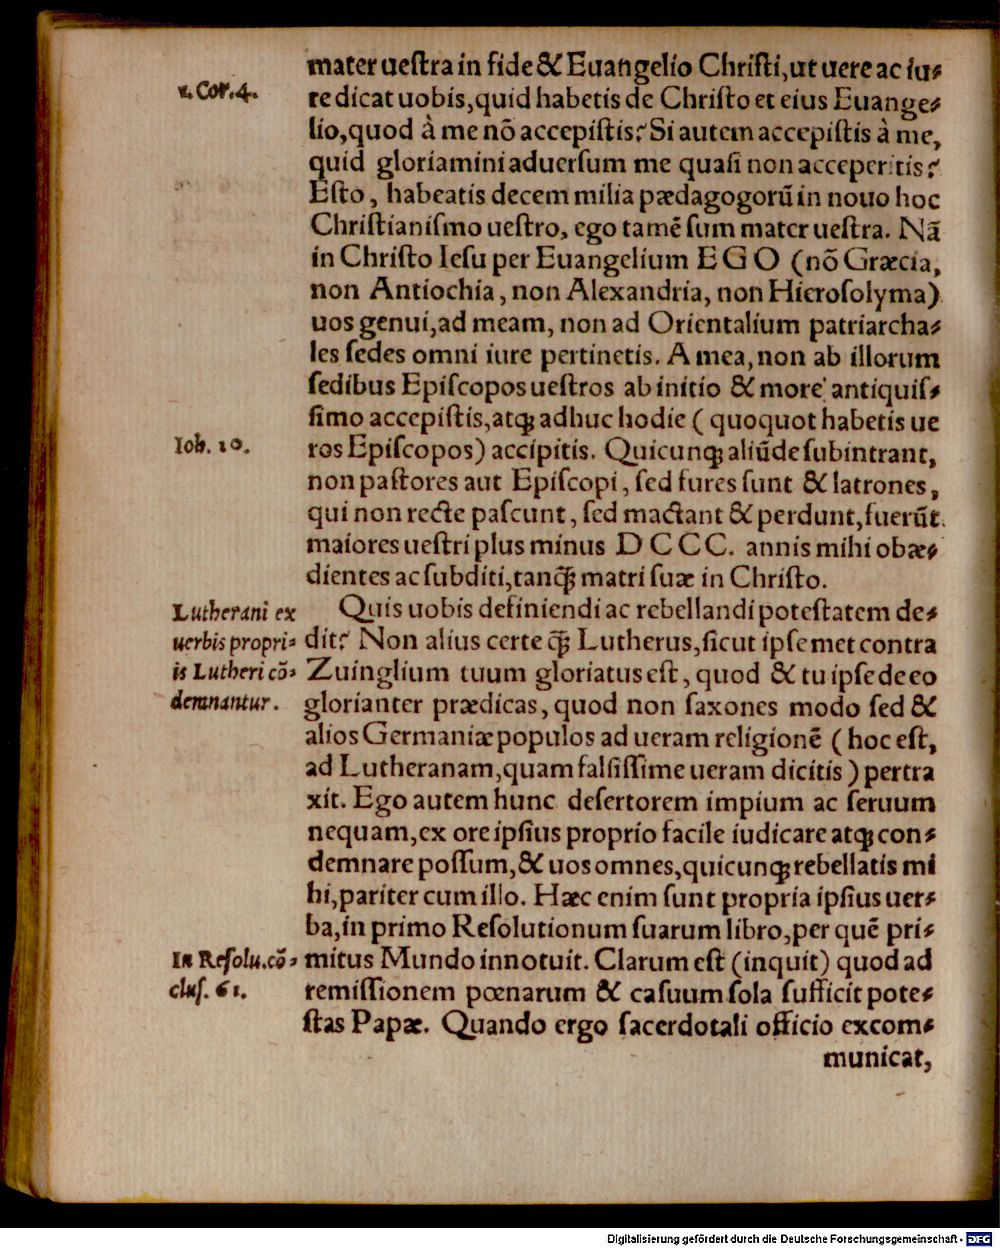 mater ueſtra in fide & Euangelio Chriſti, ut uere ac iu⸗
1. Cor. 4.
re dicat uobis, quid habetis de Chriſto et eius Euange⸗
lio, quod à me nõ accepiſtis? Si autem accepiſtis à me,
quid gloriamini aduerſum me quaſi non acceperitis?
Eſto, habeatis decem milia pædagogorũ in nouo hoc
Chriſtianiſmo ueſtro, ego tamẽ ſum mater ueſtra. Nã
in Chriſto Ieſu per Euangelium EGO (nõ Græcia,
non Antiochia, non Alexandria, non Hieroſolyma)
uos genui, ad meam, non ad Orientalium patriarcha⸗
les ſedes omni iure pertinetis. A mea, non ab illorum
ſedibus Epiſcopos ueſtros ab initio & more antiquiſ⸗
ſimo accepiſtis, atq; adhuc hodie (quoquot habetis ue
Ioh. 10.
ros Epiſcopos) accipitis. Quicunq; aliũde ſubintrant,
non paſtores aut Epiſcopi, ſed fures ſunt & latrones,
qui non recte paſcunt, ſed mactant & perdunt, fuerũt
maiores ueſtri plus minus DCCC. annis mihi obæ⸗
dientes ac ſubditi, tanq̃ matri ſuæ in Chriſto.
Lutherani ex
uerbis propri⸗
is Lutheri cõ⸗
demnantur.
Quis uobis definiendi ac rebellandi poteſtatem de⸗
dit? Non alius certe q̃ Lutherus, ſicut ipſemet contra
Zuinglium tuum gloriatus eſt, quod & tu ipſe de eo
glorianter prædicas, quod non ſaxones modo ſed &
alios Germaniæ populos ad ueram religionẽ (hoc eſt,
ad Lutheranam, quam falſiſſime ueram dicitis) pertra
xit. Ego autem hunc deſertorem impium ac ſeruum
nequam, ex ore ipſius proprio facile iudicare atq; con⸗
demnare poſſum, & uos omnes, quicunq; rebellatis mi
hi, pariter cum illo. Hæc enim ſunt propria ipſius uer⸗
ba, in primo Reſolutionum ſuarum libro, per quẽ pri⸗
In Reſolu. cõ⸗
cluſ. 61.
mitus Mundo innotuit. Clarum eſt (inquit) quod ad
remiſſionem pœnarum & caſuum ſola ſufficit pote⸗
ſtas Papæ. Quando ergo ſacerdotali officio excom⸗
municat,
Digitalisierung gefördert durch die Deutsche Forschungsgemeinschaft - DFG